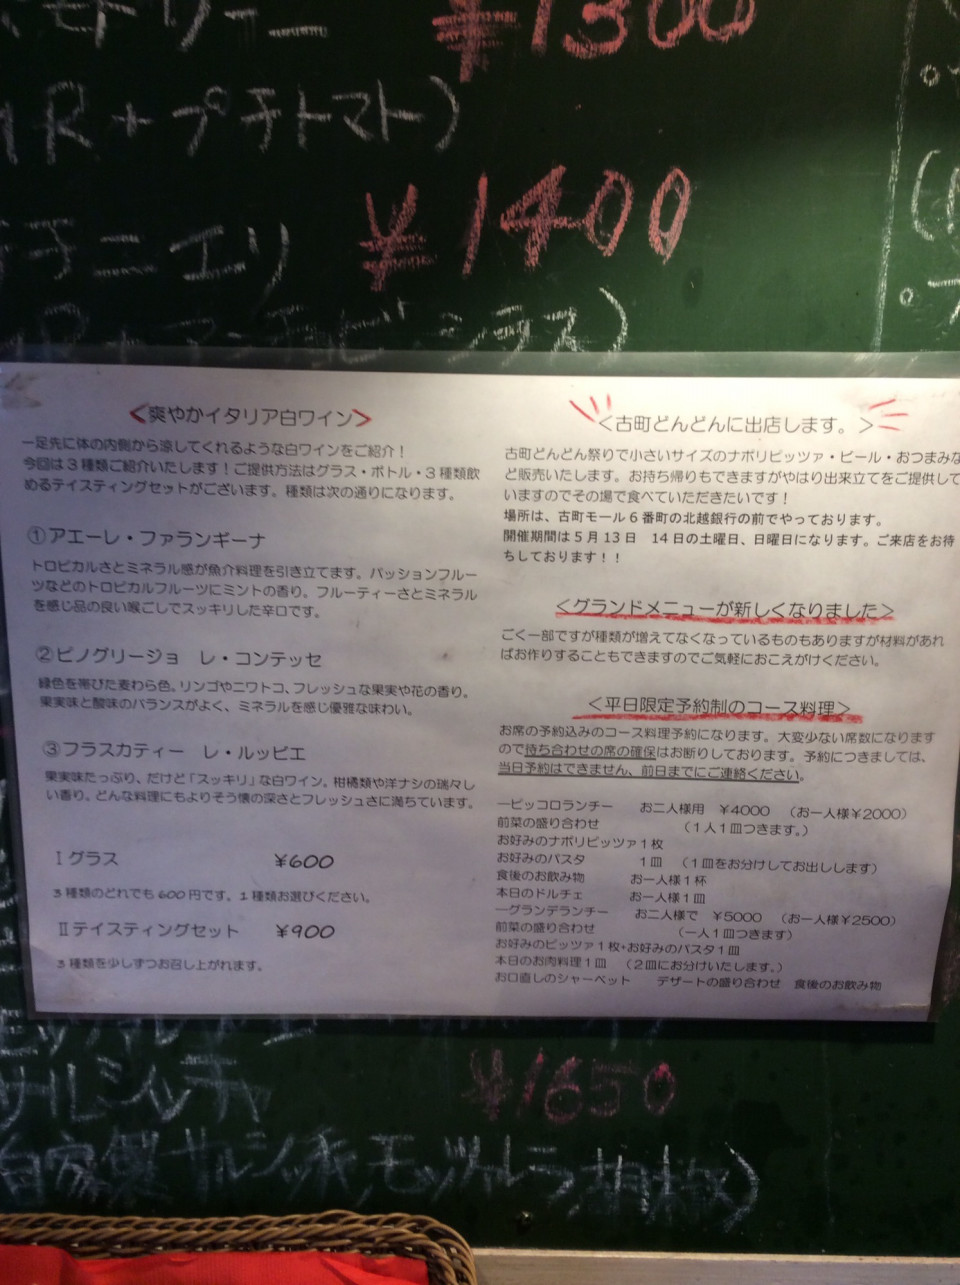 ¥1300
R+プチトマト)
チニエリ ¥1400
マーチョビ シラス)
<爽やかイタリア白ワイン>
一足先に体の内側から涼してくれるような白ワインをご紹介！
今回は３種類ご紹介いたします！ご提供方法はグラス・ボトル・３種類飲
めるテイスティングセットがございます。種類は次の通りになります。
①アエーレ・ファランギーナ
トロピカルさとミネラル感が魚介料理を引き立てます。パッションフルー
ツなどのトロピカルフルーツにミントの香り。フルーティーさとミネラル
を感じ品の良い喉ごしでスッキリした辛口です。
②ピノグリージョ　レ・コンテッセ
緑色を帯びた麦わら色。リンゴやニワトコ、フレッシュな果実や花の香り。
果実味と酸味のバランスがよく、ミネラルを感じ優雅な味わい。
③フラスカティー　レ・ルッピエ
果実味たっぷり、だけど「スッキリ」な白ワイン。柑橘類や洋ナシの瑞々し
い香り。どんな料理にもよりそう懐の深さとフレッシュさに満ちています。
Ⅰグラス　¥600
３種類のどれでも600円です。１種類お選びください。
Ⅱテイスティングセット　¥900
３種類を少しずつお召し上がれます。
<古町どんどんに出店します。>
古町どんどん祭りで小さいサイズのナポリピッツァ・ビール・おつまみな
ど販売いたします。お持ち帰りもできますがやはり出来立てをご提供して
いますのでその場で食べていただきたいです！
場所は、古町モール６番町の北越銀行の前でやっております。
開催期間は５月13日　14日の土曜日、日曜日になります。ご来店をお待
ちしております！！
<グランドメニューが新しくなりました>
ごく一部ですが種類が増えてなくなっているものもありますが材料があれ
ばお作りすることもできますのでご気軽におこえがけください。
<平日限定予約制のコース料理>
お席の予約込みのコース料理予約になります。大変少ない席数になります
ので待ち合わせの席の確保はお断りしております。予約につきましては、
当日予約はできません、前日までにご連絡ください。
―ピッコロランチー　お二人様用　¥4000　（お一人様¥2000）
前菜の盛り合わせ　（１人１皿つきます。）
お好みのナポリピッツァ１枚
お好みのパスタ　１皿　（１皿をお分けしてお出しします）
食後のお飲み物　お一人様１杯
本日のドルチェ　お一人様１皿
―グランデランチー　お二人様で　¥5000　（お一人様¥2500）
前菜の盛り合わせ　（一人１皿つきます）
お好みのピッツァ１枚+お好みのパスタ１皿
本日のお肉料理１皿　（２皿にお分けいたします。）
お口直しのシャーベット　デザートの盛り合わせ　食後のお飲み物
サルシッチャ ¥1650
自家製サルシッチャ,モッツァレラ,胡椒)